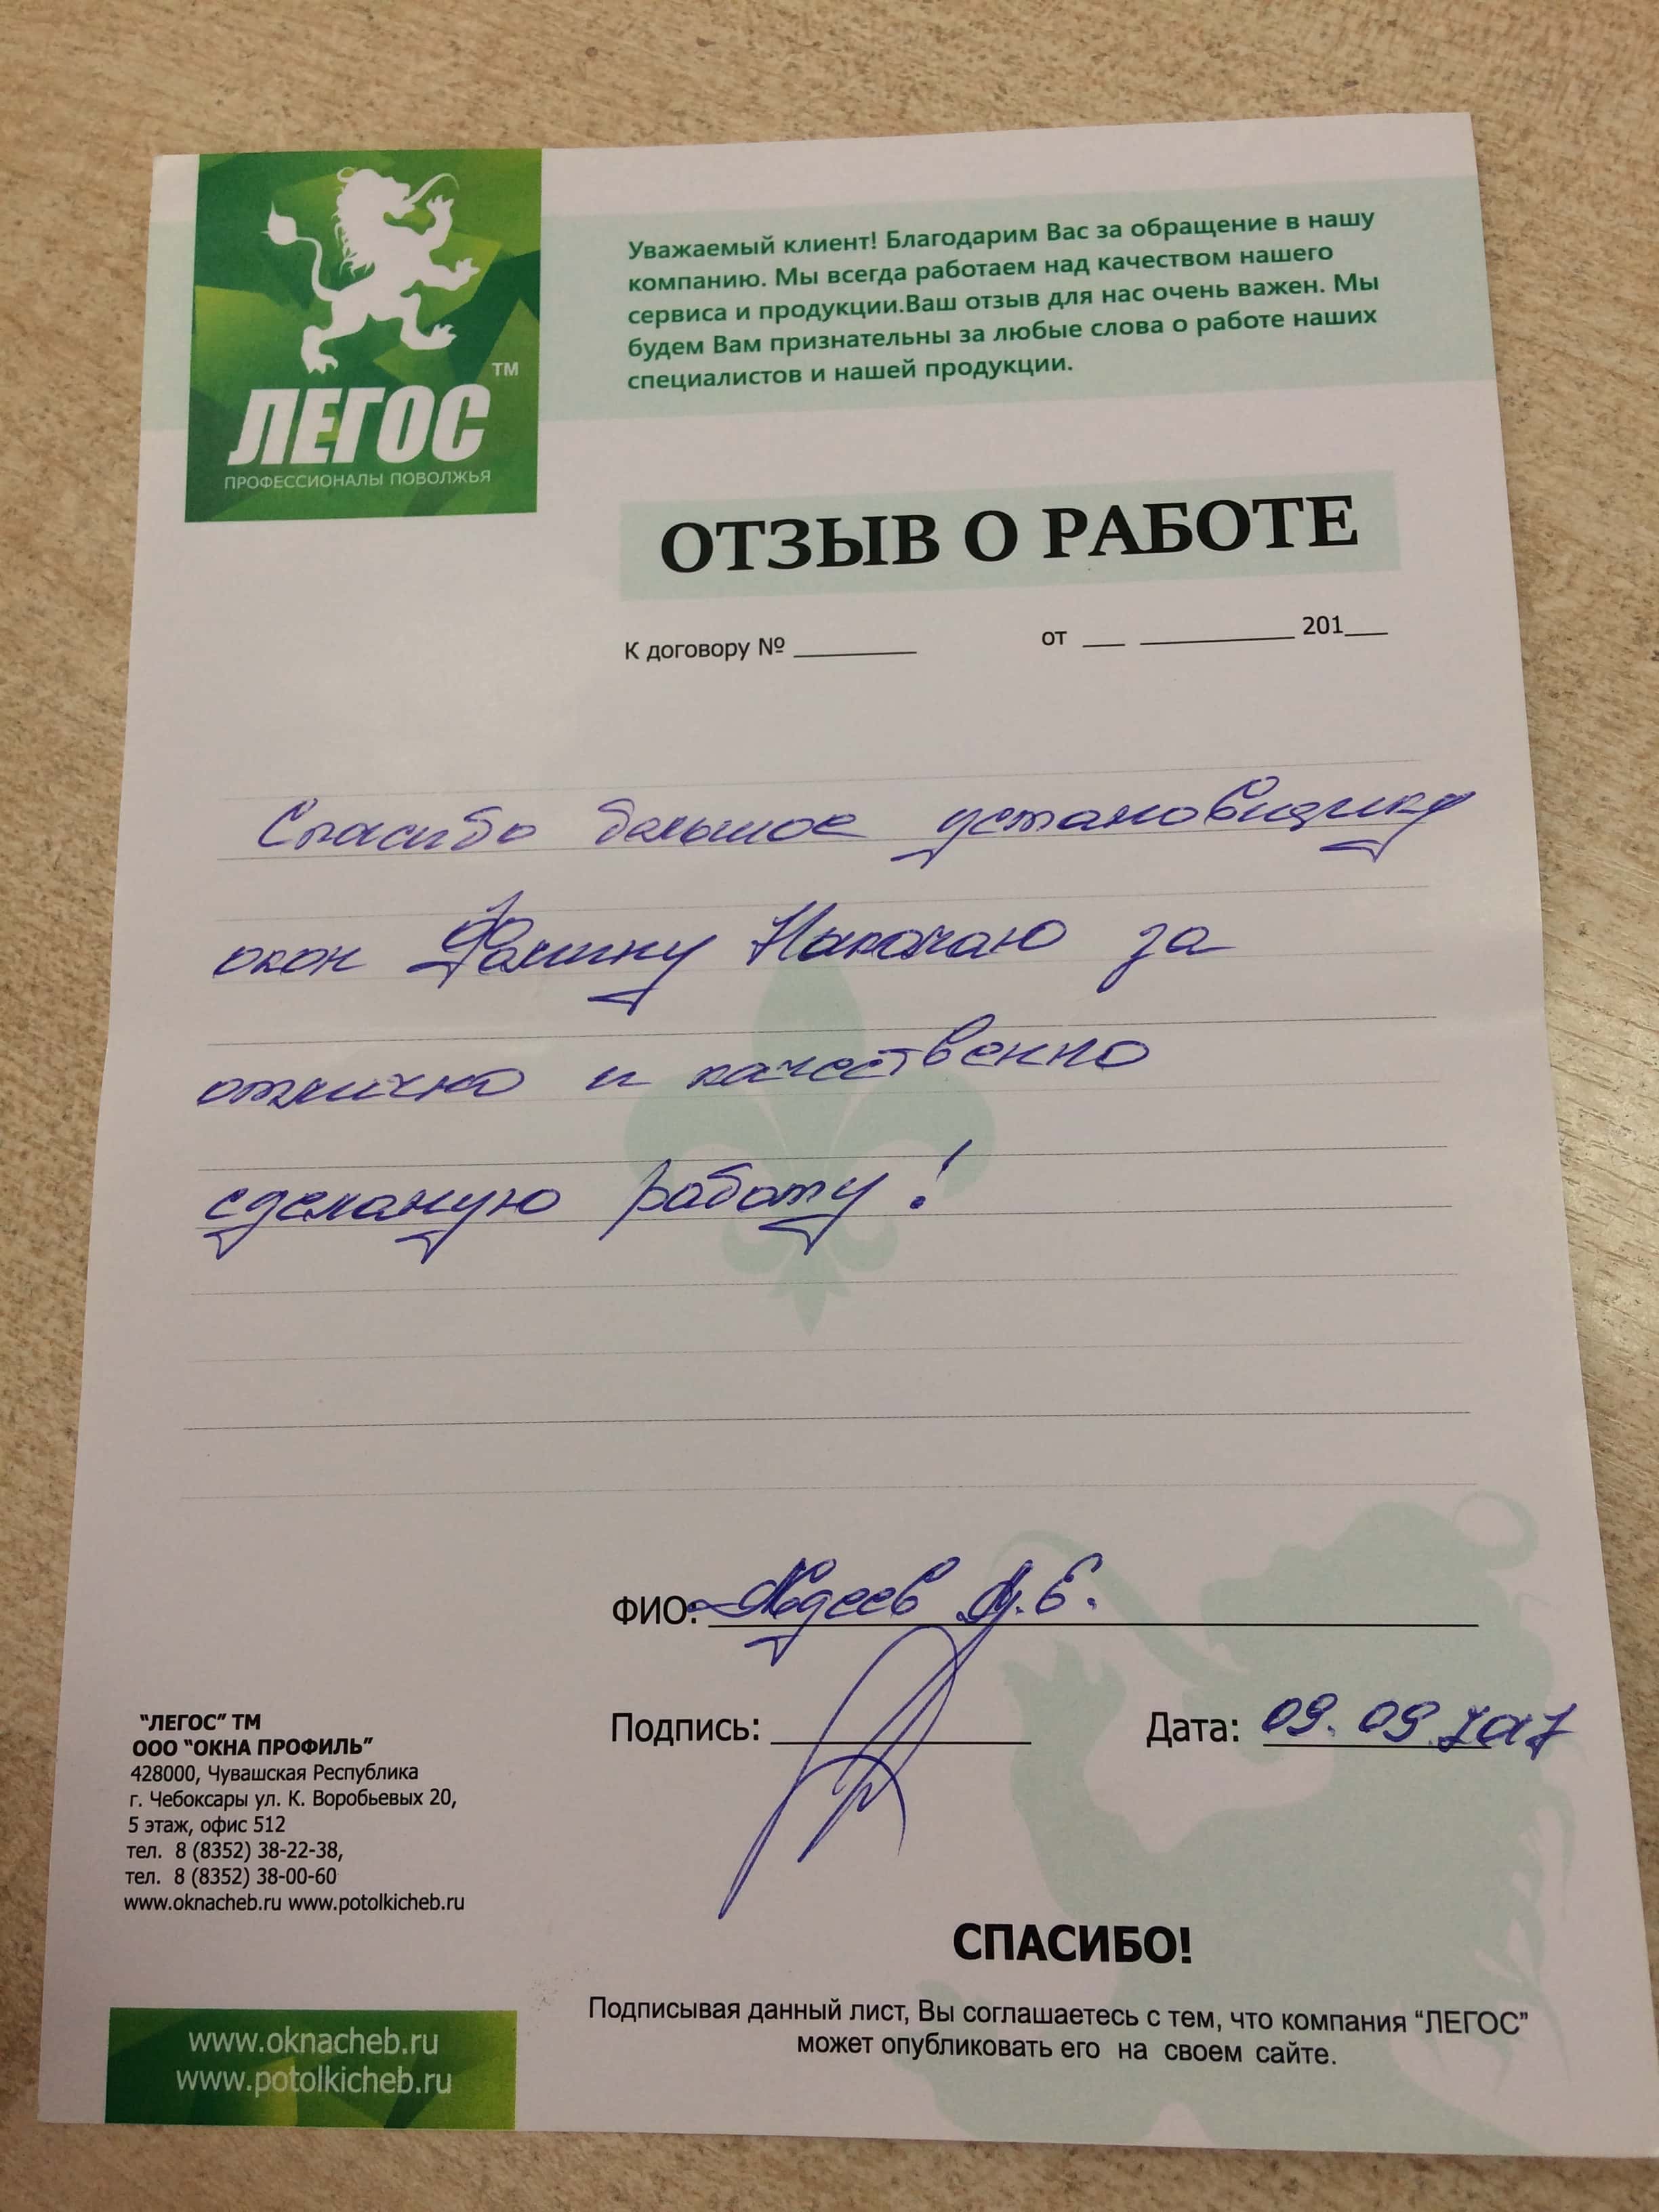 ТМ
ЛЕГОС
ПРОФЕССИОНАЛЫ ПОВОЛЖЬЯ
Уважаемый клиент! Благодарим Вас за обращение в нашу
компанию. Мы всегда работаем над качеством нашего
сервиса и продукции.Ваш отзыв для нас очень важен. Мы
будем Вам признательны за любые слова о работе наших
специалистов и нашей продукции.
ОТЗЫВ О РАБОТЕ
К договору № ______ от __ ________ 201__
Спасибо большое установщику
окон Фомину Николаю за
отлично и качественно
сделаную работу!
ФИО: Авдеев А.Е.
Подпись: Дата: 09.09.2017
"ЛЕГОС" ТМ
ООО "ОКНА ПРОФИЛЬ"
428000, Чувашская Республика
г. Чебоксары ул. К. Воробьевых 20,
5 этаж, офис 512
тел. 8 (8352) 38-22-38,
тел. 8 (8352) 38-00-60
www.oknacheb.ru www.potolkicheb.ru
СПАСИБО!
Подписывая данный лист, Вы соглашаетесь с тем, что компания "ЛЕГОС"
может опубликовать его на своем сайте.
www.oknacheb.ru
www.potolkicheb.ru